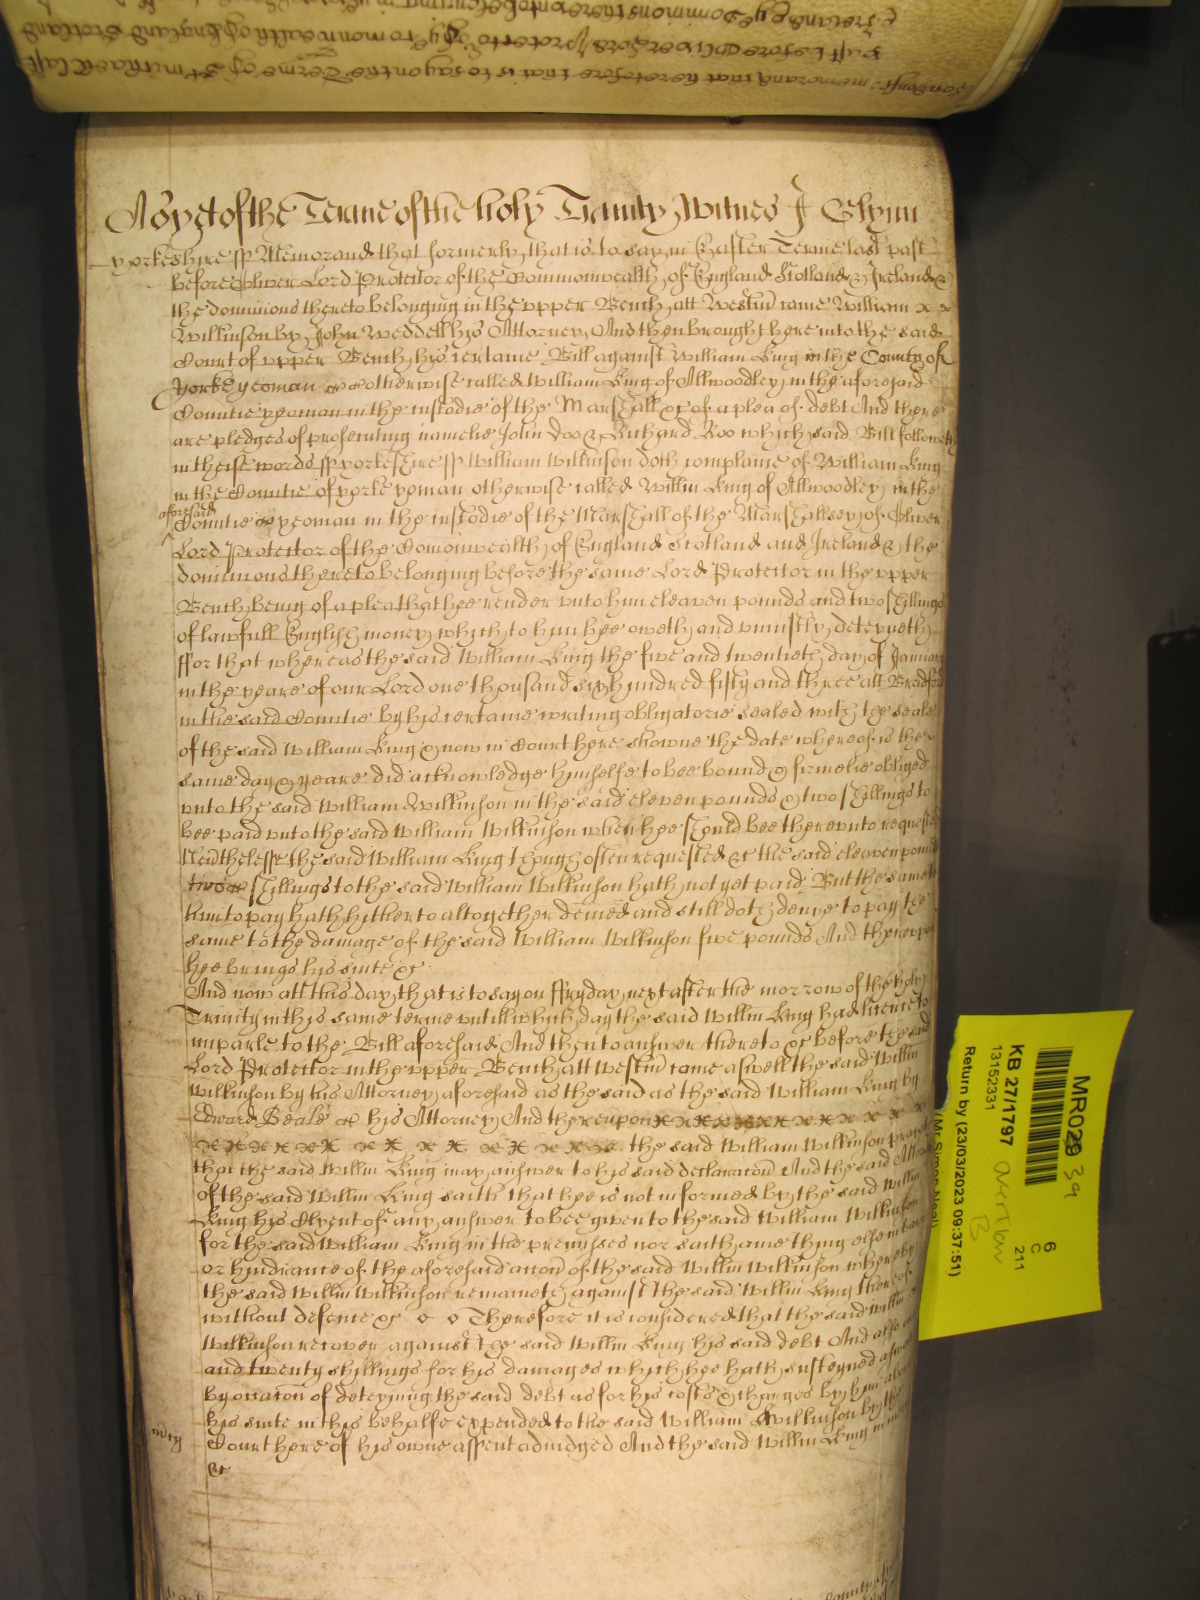 As yet of the Terme of the holy Trinity Witnes J Glynn
Yorkeshire ss Memorand that formerly that is to say in Easter Terme last past
before Oliver Lord Protector of the Commonwealth of England Scotland & Ireland &
the dominions thereto belonging in the vpper Bench att Westm came William x x
Wilkinson by John Weddell his Attorney And then brought here into the said
Court of vpper Bench his certaine Bill against William King in the County of
Yorke yeoman otherwise called William King of Allwoodley in the aforesaid
Countie yeoman in the custodie of the Marshall &c of a plea of debt And there
are pledges of prosecuting namelie John Doo & Richard Roo which said Bill followeth
in theise words ss Yorkeshire ss William Wilkinson doth complaine of William King
in the Countie of yorke yeoman otherwise called Willm King of Allwoodley in the
aforesaid
Countie yeoman in the custodie of the Marshall of the Marshallsey of Oliver
Lord Protector of the Comonwealth of England Scotland and Ireland & the
dominions thereto belonging before the same Lord Protector in the vpper
Bench being of a plea that hee render vnto him eleaven pounds and two shillings
of lawfull English money which to him hee oweth and vniustly deteyneth
ffor that whereas the said William King the five and twentieth day of January
in the yeare of our Lord one thousand six hundred fifty and three att Bradford
in the said Countie by his certaine writing obligatorie sealed with the seale
of the said William King & now in Court here showne the date whereof is the
same day & yeare did acknowledge himselfe to bee bound & firmelie obliged
vnto the said William Wilkinson in the said eleven pounds & two shillings to
bee paid vnto the said William Wilkinson when hee should bee therevnto requested
Neuthelesse the said William King though often requested &c the said eleaven pounds
two shillings to the said William Wilkinson hath not yet paid But the same to
him to pay hath hitherto altogether denied and still doth denye to pay the
same to the damage of the said William Wilkinson five pounds And therevpon
hee brings his suite &c
And now att this day that is to say on ffryday next after the morrow of the holy
Trinity in this same terme vntill which day the said Willm King had licence to
imparle to the Bill aforesaid And then to answer thereto &c before the said
Lord Protector in the vpper Bench att Westm came aswell the said Willm
Wilkinson by his Attorney aforesaid as the said as the said William King by
Edward Beale his Attorney And therevpon x x x x x x x x x x x x
x x x x x x x x x x x x x x the said William Wilkinson prayeth
that the said Willm King may answer to his said declaracon And the said Attorney
of the said Willm King saith that hee is not informed by the said Willm
King his Clyent of any answer to bee given to the said William Wilkinson
for the said William King in the premisses nor saith anie thing else in barr
or hindrance of the aforesaid accon of the said Willm Wilkinson whereby
the said Willm Wilkinson remaineth against the said Willm King thereof
without defence &c Therefore it is considered that the said Willm
Wilkinson recover against the said Willm King his said debt And also
and twenty shillings for his damages which hee hath susteyned aswell
by occacon of deteyning the said debt as for his costs & charges by him about
his suite in this behalfe expended to the said William Wilkinson by the
Court here of his owne assent adiudged And the said Willm King in mercy
&c
MR029 39
KB 27/1797
13152331
Return by (23/03/2023 09:37:51)
6
C
211